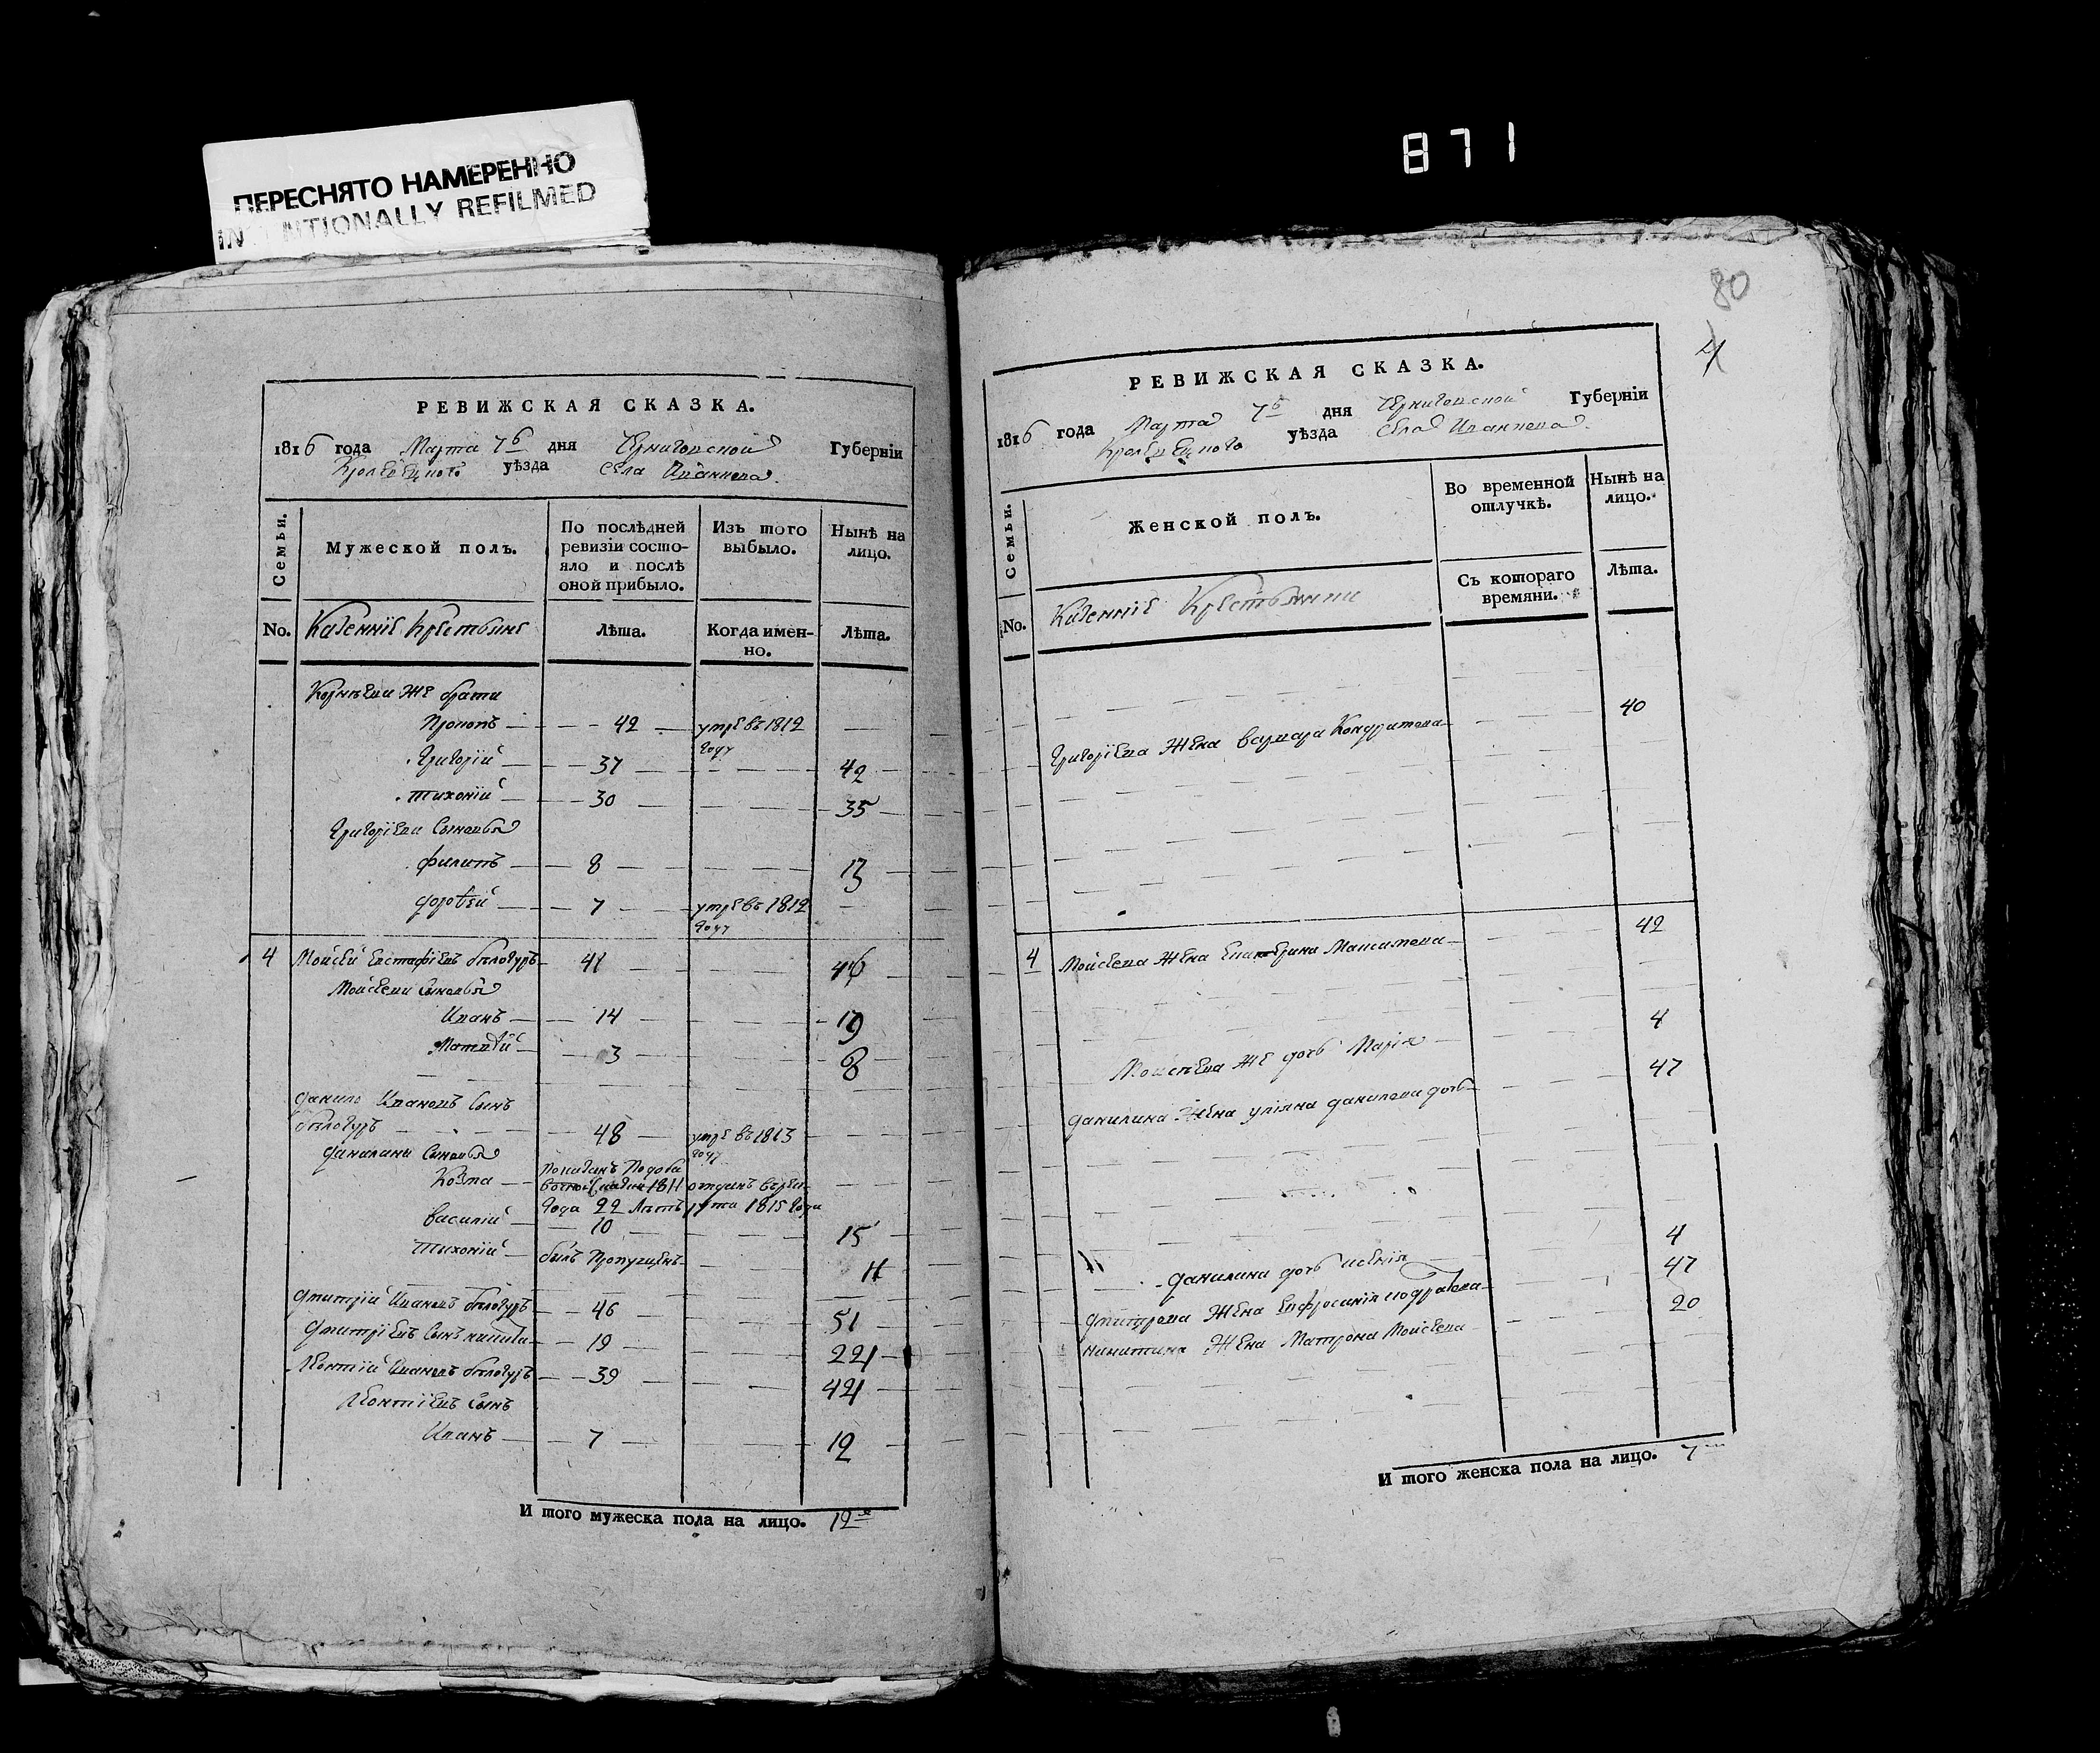 ПЕРЕСНЯТО НАМЕРЕННО
INTENTIONALLY REFILMED
871
РЕВИЖСКАЯ СКАЗКА.
1816 года Марта 7го дня Черниговской Губерніи
Кролевецкого уѣзда села Иваннева.
Семьи.
Мужеской полъ.
По послѣдней ревизіи состо-
яло и послѣ
оной прибыло.
Изъ того
выбыло.
Нынѣ на
лицо.
No. Казенніе Крестьяне Лѣта. Когда имен-
но. Лѣта.
Корнѣеви же брати
Прокопъ 42 умре въ 1812
году
Григорій 37 42
Тихоній 30 35
Григоріеви Сыновья
Филипъ 8 13
Дорофей 7 умре въ 1812
году
4 Мойсей Евстафіевъ Бѣлогуръ 41 46
Мойсееви Сыновья
Иванъ 14 19
Матвѣй 3 8
Данило Ивановъ Сынъ
Бѣлогуръ 48 умре въ 1813
году
Данилини Сыновья
Козма 1811 отданъ въ рек-
года 22 Лѣтъ руты 1815 года
Василій 10 15
Тихоній былъ Пропущенъ 11
Дмитрій Ивановъ Бѣлогуръ 46 51
Дмитріевъ Сынъ Никита 19 24
Леонтій Ивановъ Бѣлогуръ 39 44
Леонтіевъ Сынъ
Иванъ 7 12
И того мужеска пола на лицо. 12
80
4
РЕВИЖСКАЯ СКАЗКА.
1816 года Марта 7го дня Черниговской Губерніи
Кролевецкого уѣзда села Иваннева.
Семьи.
Женской полъ.
Во временной
отлучкѣ.
Нынѣ на
лицо.
No. Казенніе Крестьянки Съ котораго
времяни. Лѣта.
Григоріева Жена Варвара Кондратова 40
4 Мойсеева Жена Екатерина Максимова 42
Мойсѣева же дочь Марія 4
Данилина Жена Уліяна Данилова дочь 47
Данилина дочь Ксенія 4
Дмитрова Жена Евфросинія Кодратова 47
Никитина Жена Матрона Мойсеева 20
И того женска пола на лицо. 7